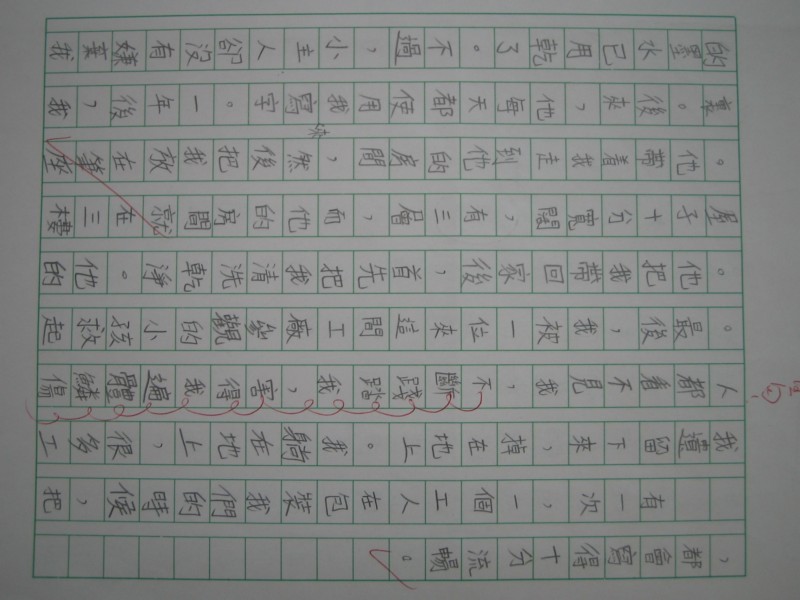 ，都會寫得十分流暢。
有一次，一個工人在包裝我們的時候，把
我遺留下來，掉在地上。我躺在地上，很多工
人都看不見我，不斷踐踏我，害得我遍體鱗傷
。最後，我被一位來這間工廠參觀的小孩救起
。他把我帶回家後，首先把我清洗乾淨。他的
屋子十分寬闊，有三層，而他的房間就在三樓
。他帶着我走到他的房間，然後把我放在筆座
裏。後來，他每天都使用我來寫字。一年後，我
的墨水已用乾了。不過，小主人卻沒有嫌棄我